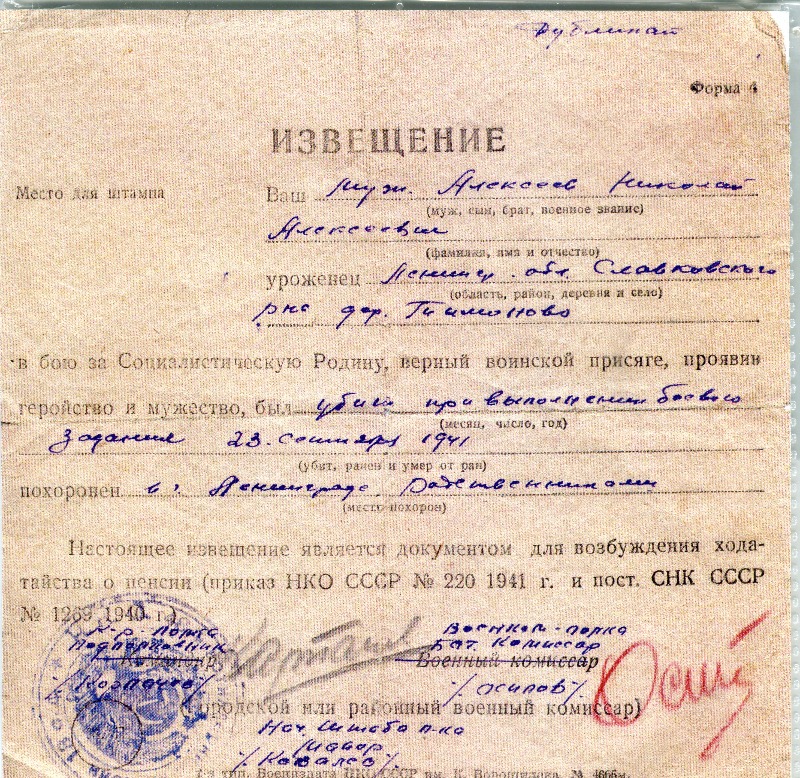 Дубликат
Форма 4
ИЗВЕЩЕНИЕ
Место для штампа
Ваш муж. Алексеев Николай
(муж, сын, брат, военное звание)
Алексеевич
(фамилия, имя и отчество)
уроженец Ленингр. обл. Славковского
(область, район, деревня и село)
рна дер.
в бою за Социалистическую Родину, верный воинской присяге, проявив
геройство и мужество, был убит при выполнении боевого
(месяц, число, год)
задания 23. сентября 1941
(убит, ранен и умер от ран)
похоронен в г. Ленинграде родственниками
(место похорон)
Настоящее извещение является документом для возбуждения хода-
тайства о пенсии (приказ НКО СССР № 220 1941 г. и пост. СНК СССР
№ 1269 1940 г.)
К-р полка
Подполковник
Командир
Военком-полка
Бат. Комиссар
Военный комиссар
(городской или районный военный комиссар)
Нач. Штаба п-ка
Майор
/Ковалев/